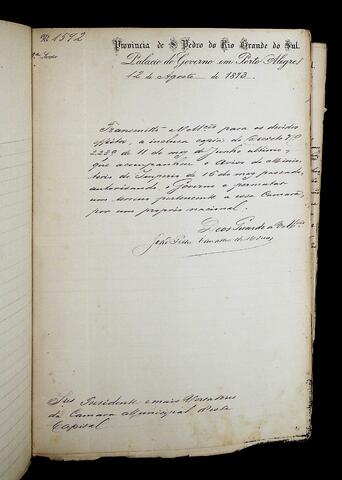 Nº 1592
Provincia de S. Pedro do Rio Grande do Sul.
Palacio do Governo em Porto Alegre
12 de Agosto de 1873.
Transmitto a para os devidos
a inclusa copia do Decreto Nº
2229 de 11 de mez de Junho ultimo,
que acompanhou o Aviso do Minis-
terio do Imperio de 16 do mez passado,
autorisando o Governo a permutar
um terreno pertencente a essa Camara,
por um proprio nacional.
Deos Guarde a
João Pedro Carvalho de Moraes
Srs. Presidente e mais Vereadores
da Camara Municipal desta
Capital